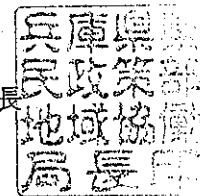 長
兵庫県県
民政策部
地域協働
局長印